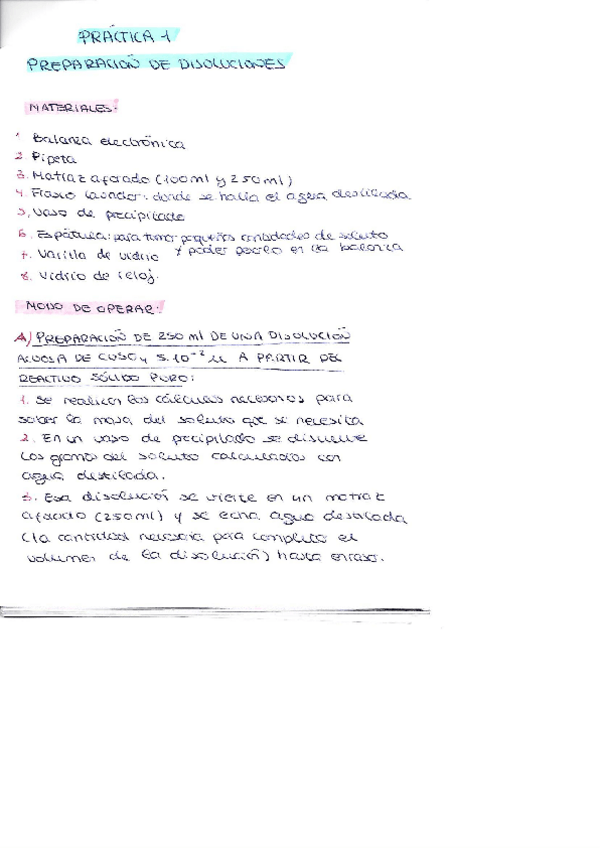 PRÁCTICA 1
PREPARACIÓN DE DISOLUCIONES
MATERIALES:
1. Balanza electrónica
2. Pipeta
3. Matraz aforado (100ml y 250ml)
4. Frasco lavador: donde se halla el agua destilada
5. Vaso de precipitado
6. Espátula: para tomar pequeñas cantidades de soluto
y poder pesarlo en la balanza
7. Varilla de vidrio
8. Vidrio de reloj.
MODO DE OPERAR:
A) PREPARACIÓN DE 250 ml DE UNA DISOLUCIÓN
ACUOSA DE CuSO4 5.10⁻² M A PARTIR DEL
REACTIVO SÓLIDO PURO:
1. Se realizan los cálculos necesarios para
saber la masa del soluto que se necesita
2. En un vaso de precipitado se disuelve
los gramos del soluto calculados con
agua destilada.
3. Esa disolución se vierte en un matraz
aforado (250ml) y se echa agua desalada
(la cantidad necesaria para completar el
volumen de la disolución) hasta enrase.